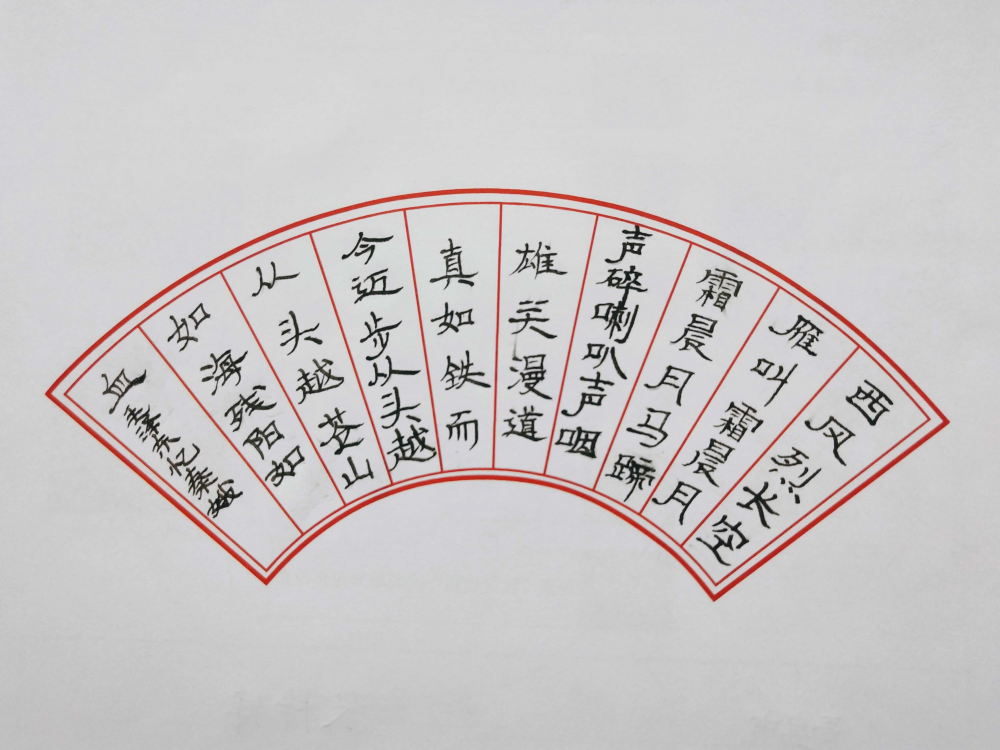 西风烈长空
雁叫霜晨月
霜晨月马蹄
声碎喇叭声咽
雄关漫道
真如铁而
今迈步从头越
从头越苍山
如海残阳如
血 忆秦娥